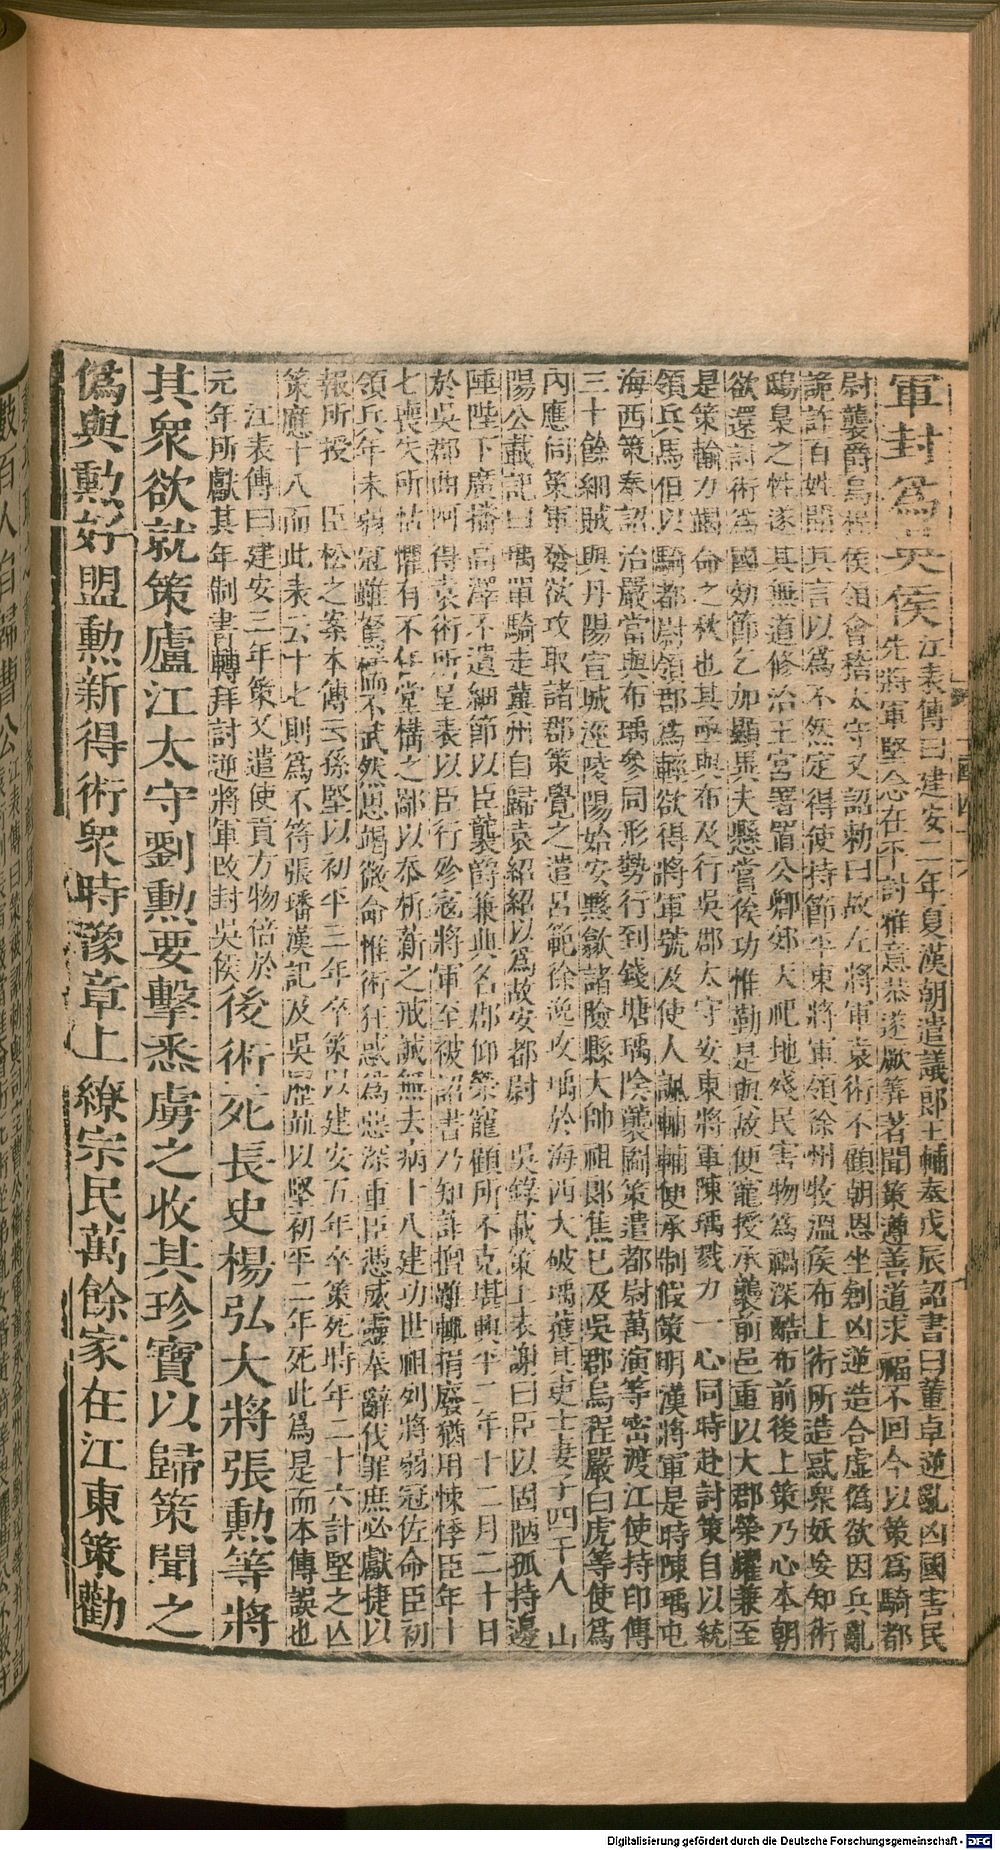 軍封爲吳侯
江表傳曰建安二年夏漢朝遣議郎王輔奉戊辰詔書曰董卓逆亂凶國害民
先將軍堅念在平討雅意恭遂厥筭著聞策遵善道求福不回今以策爲騎都
尉襲爵烏程侯領會稽太守又詔勑曰故左將軍袁術不顧朝恩坐創凶逆造合虛僞欲因兵亂
詭詐百姓聞其言以爲不然定得使持節平東將軍領徐州牧溫侯布上術所造惑衆妖妄知術
鴟梟之性遂其無道修治王宮署置公卿郊天祀地殘民害物爲禍深酷布前後上策乃心本朝
欲還討術爲國効節乞加顯異夫懸賞俟功惟勤是與故便寵授承襲前邑重以大郡榮耀兼至
是策輸力竭命之秋也其亟與布及行吳郡太守安東將軍陳瑀戮力一心同時赴討策自以統
領兵馬但以騎都尉領郡爲輕欲得將軍號及使人諷輔輔便承制假策明漢將軍是時陳瑀屯
海西策奉詔治嚴當與布瑀參同形勢行到錢塘瑀陰襲圖策遣都尉萬演等密渡江使持印傳
三十餘細賊與丹陽宣城涇陵陽始安黟歙諸險縣大帥祖郎焦已及吳郡烏程嚴白虎等使爲
內應伺策軍發欲攻取諸郡策覺之遣呂範徐逸攻瑀於海西大破瑀獲其吏士妻子四千人 山
陽公載記曰瑀單騎走冀州自歸袁紹紹以爲故安都尉 吳錄載策上表謝曰臣以固陋孤持邊
陲陛下廣播高澤不遺細節以臣襲爵兼典名郡仰榮寵顧所不克堪興平二年十二月二十日
於吳郡曲阿得袁術所呈表以臣行殄寇將軍至被詔書乃知詐擅雖輒捐廢猶用悚悸臣年十
七喪失所怙懼有不任堂構之鄙以忝析薪之戒誠無去病十八建功世祖列將弱冠佐命臣初
領兵年未弱冠雖駑懦不武然思竭微命惟術狂惑爲惡深重臣憑威靈奉辭伐罪庶必獻捷以
報所授 臣松之案本傳云孫堅以初平三年卒策以建安五年卒策死時年二十六計堅之亡
策應十八而此表云十七則爲不符張璠漢記及吳歷並以堅初平二年死此爲是而本傳誤也
江表傳曰建安三年策又遣使貢方物倍於
元年所獻其年制書轉拜討逆將軍改封吳侯
後術死長史楊弘大將張勳等將
其衆欲就策廬江太守劉勳要擊悉虜之收其珍寶以歸策聞之
僞與勳好盟勳新得術衆時豫章上繚宗民萬餘家在江東策勸
Digitalisierung gefördert durch die Deutsche Forschungsgemeinschaft - DFG